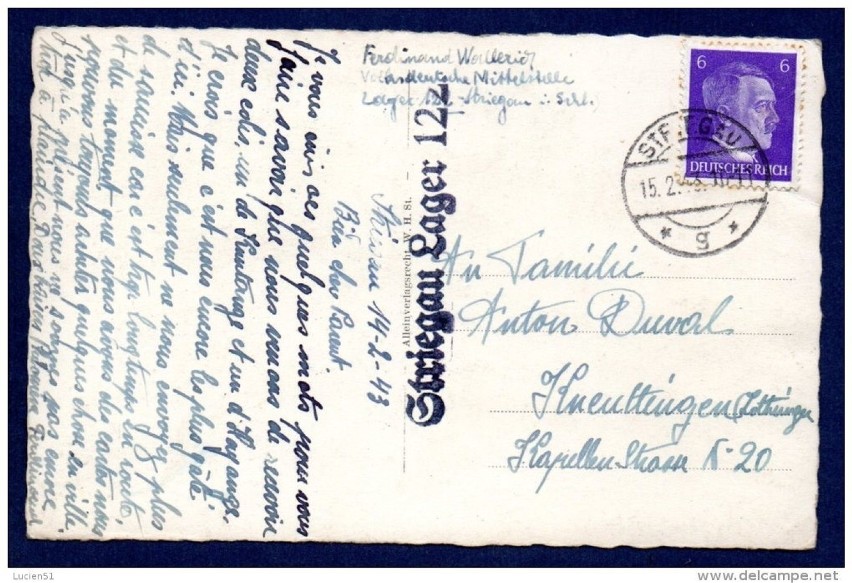 Ferdinand Wallerich
Volksdeutsche Mittelstelle
Lager 122 Striegau i. Schl.
6 6
DEUTSCHES REICH
STRIEGAU
15.2.43
* g *
Striegau Lager 122
Alleinverlagsrecht: W. H. St.
An Familie
Anton Duval
Kneuttingen Lothringen
Kapellen Strasse N° 20
Striegau 14-2-43
Bien cher Parent
Je vous écris ces quelques mots pour vous
faire savoir que nous venons de recevoir
deux colis, un de Knutange et un d'Hayange.
Je crois que c'est nous encore les plus gâté
d'ici. Mais seulement ne nous envoyez plus
de saucisse car c'est trop longtemps en route
et du moment que nous avons des cartes nous
pouvons toujours acheter quelques chose en ville
jusqu'à présent nous ne sommes pas encore
à plaindre. Ferdinand
Lucien51
delcampe.net